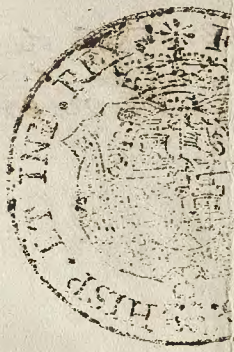 HISP · ET IND · REX